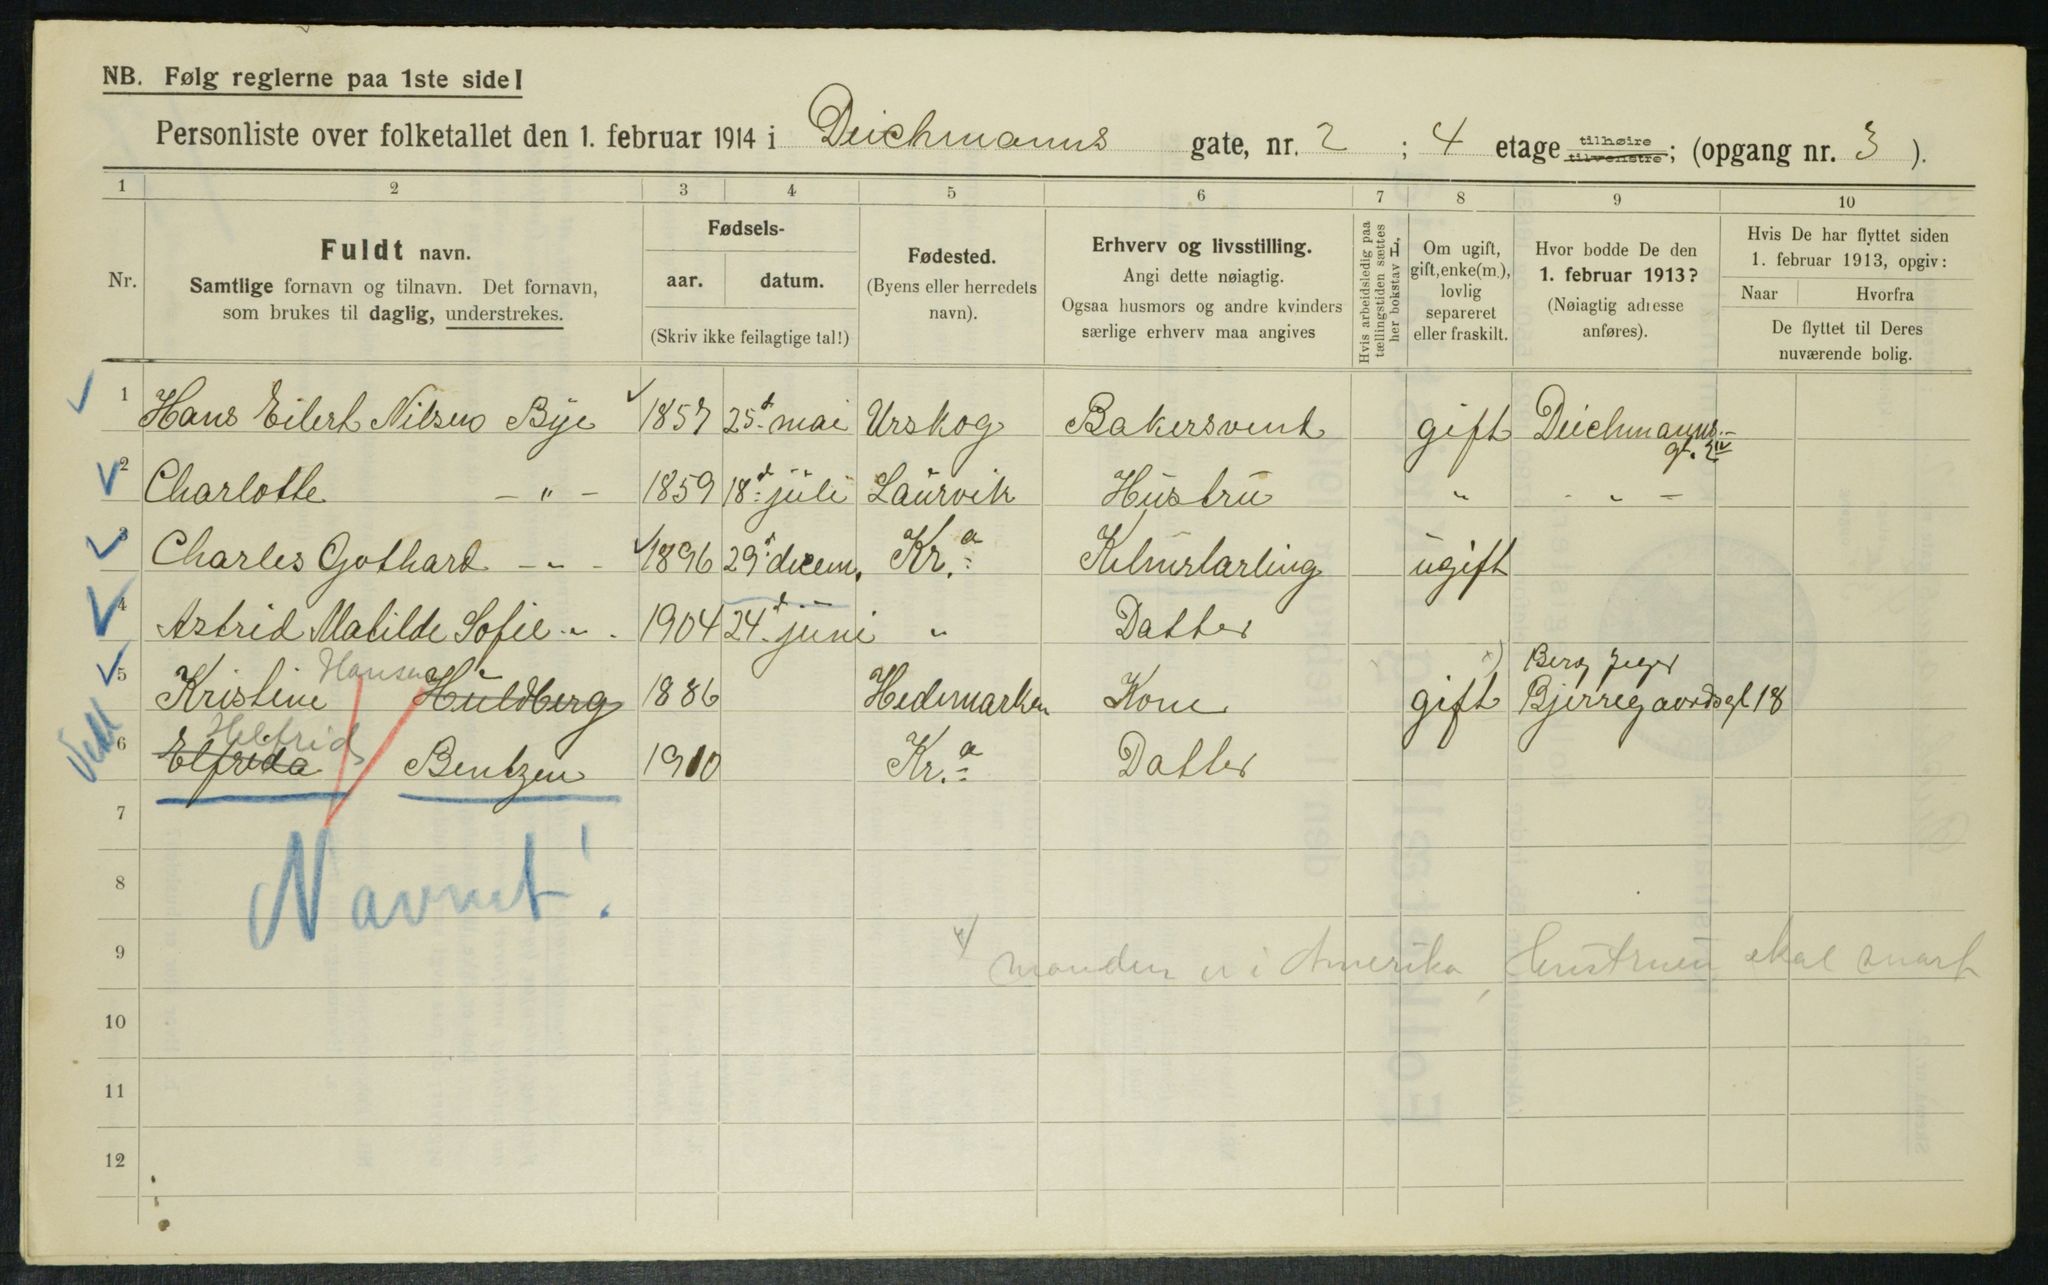 NB. Følg reglerne paa 1ste side!
Personliste over folketallet den 1. februar 1914 i Deichmanns gate, nr. 2 ; 4 etage tilhøire tilvenstre; (opgang nr. 3 ).
1 2 3 4 5 6 7 8 9 10
Nr.
Fuldt navn.
Samtlige fornavn og tilnavn. Det fornavn,
som brukes til daglig, understrekes.
Fødsels-
aar. datum.
(Skriv ikke feilagtige tal!)
Fødested.
(Byens eller herredets
navn).
Erhverv og livsstilling.
Angi dette nøiagtig.
Ogsaa husmors og andre kvinders
særlige erhverv maa angives
Hvis arbeidsledig paa
tællingstiden sættes
her bokstav L.
Om ugift,
gift, enke(m.),
lovlig
separeret
eller fraskilt.
Hvor bodde De den
1. februar 1913?
(Nøiagtig adresse
anføres).
Hvis De har flyttet siden
1. februar 1913, opgiv:
Naar Hvorfra
De flyttet til Deres
nuværende bolig.
1 Hans Eilert Nilsen Bye 1857 25d. mai Urskog Bakersvent gift Deichmanns-
gt. 2 IV
2 Charlotte — " — 1859 18d. juli Laurvik Hustru " - " -
3 Charles Gothard - " - 1896 29d. decem. Kr.a ugift
4 Astrid Matilde Sofie - " - 1904 24d. juni " Datter
Hansen
Berg Jeger
5 Kristine Huldberg 1886 Hedemarken Kone x) gift Bjerregaardsgt 18
Helfrid
6 Elfrida Bentzen 1910 Kr.a Datter
7
Navnet!
8
9 x) manden er i Amerika, Hustruen skal snart
10
11
12